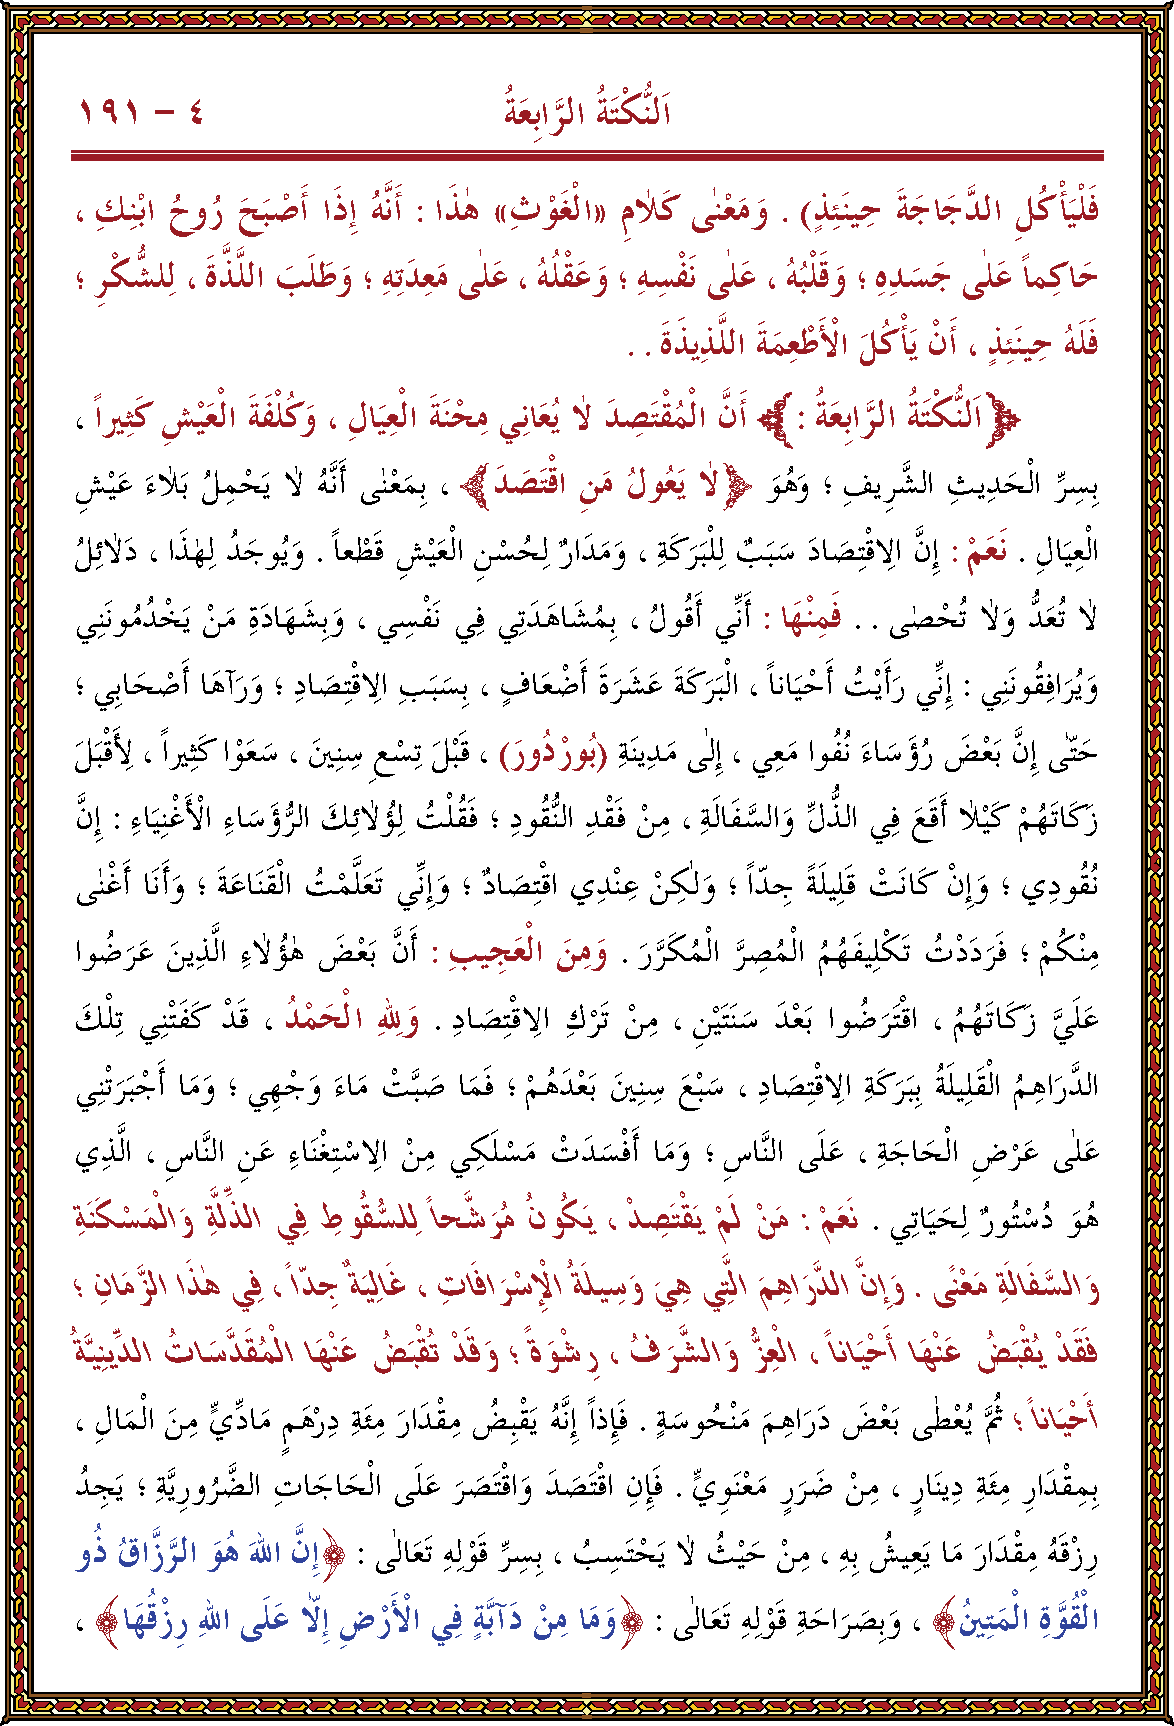 اَلنُّكْتَةُ الرَّابِعَةُ ٤ - ١٩١
فَلْيَأْكُلِ الدَّجَاجَةَ حِينَئِذٍ) . وَمَعْنٰى كَلاٰمِ «الْغَوْثِ» هٰذَا : أَنَّهُ إِذَا أَصْبَحَ رُوحُ ابْنِكِ ،
حَاكِماً عَلٰى جَسَدِهِ ؛ وَقَلْبُهُ ، عَلٰى نَفْسِهِ ؛ وَعَقْلُهُ ، عَلٰى مَعِدَتِهِ ؛ وَطَلَبَ اللَّذَّةَ ، لِلشُّكْرِ ؛
فَلَهُ حِينَئِذٍ ، أَنْ يَأْكُلَ الْأَطْعِمَةَ اللَّذِيذَةَ . .
﴿اَلنُّكْتَةُ الرَّابِعَةُ : ﴾ أَنَّ الْمُقْتَصِدَ لاٰ يُعَانِي مِحْنَةَ الْعِيَالِ ، وَكُلْفَةَ الْعَيْشِ كَثِيراً ،
بِسِرِّ الْحَدِيثِ الشَّرِيفِ ؛ وَهُوَ ﴿لاٰ يَعُولُ مَنِ اقْتَصَدَ﴾ ، بِمَعْنٰى أَنَّهُ لاٰ يَحْمِلُ بَلاٰءَ عَيْشِ
الْعِيَالِ . نَعَمْ : إِنَّ الِاقْتِصَادَ سَبَبٌ لِلْبَرَكَةِ ، وَمَدَارٌ لِحُسْنِ الْعَيْشِ قَطْعاً . وَيُوجَدُ لِهٰذَا ، دَلاٰئِلُ
لاٰ تُعَدُّ وَلاٰ تُحْصٰى . . فَمِنْهَا : أَنِّي أَقُولُ ، بِمُشَاهَدَتِي فِي نَفْسِي ، وَبِشَهَادَةِ مَنْ يَخْدُمُونَنِي
وَيُرَافِقُونَنِي : إِنِّي رَأَيْتُ أَحْيَاناً ، الْبَرَكَةَ عَشَرَةَ أَضْعَافٍ ، بِسَبَبِ الِاقْتِصَادِ ؛ وَرَآهَا أَصْحَابِي ؛
حَتّٰى إِنَّ بَعْضَ رُؤَسَاءَ نُفُوا مَعِي ، إِلٰى مَدِينَةِ (بُورْدُورَ) ، قَبْلَ تِسْعِ سِنِينَ ، سَعَوْا كَثِيراً ، لِأَقْبَلَ
زَكَاتَهُمْ كَيْلاٰ أَقَعَ فِي الذُّلِّ وَالسَّفَالَةِ ، مِنْ فَقْدِ النُّقُودِ ؛ فَقُلْتُ لِؤُلاٰئِكَ الرُّؤَسَاءِ الْأَغْنِيَاءِ : إِنَّ
نُقُودِي ؛ وَإِنْ كَانَتْ قَلِيلَةً جِدّاً ؛ وَلٰكِنْ عِنْدِي اقْتِصَادٌ ؛ وَإِنِّي تَعَلَّمْتُ الْقَنَاعَةَ ؛ وَأَنَا أَغْنٰى
مِنْكُمْ ؛ فَرَدَدْتُ تَكْلِيفَهُمُ الْمُصِرَّ الْمُكَرَّرَ . وَمِنَ الْعَجِيبِ : أَنَّ بَعْضَ هٰؤُلاٰءِ الَّذِينَ عَرَضُوا
عَلَيَّ زَكَاتَهُمُ ، اقْتَرَضُوا بَعْدَ سَنَتَيْنِ ، مِنْ تَرْكِ الِاقْتِصَادِ . وَلِلهِ الْحَمْدُ ، قَدْ كَفَتْنِي تِلْكَ
الدَّرَاهِمُ الْقَلِيلَةُ بِبَرَكَةِ الِاقْتِصَادِ ، سَبْعَ سِنِينَ بَعْدَهُمْ ؛ فَمَا صَبَّتْ مَاءَ وَجْهِي ؛ وَمَا أَجْبَرَتْنِي
عَلٰى عَرْضِ الْحَاجَةِ ، عَلَى النَّاسِ ؛ وَمَا أَفْسَدَتْ مَسْلَكِي مِنْ الِاسْتِغْنَاءِ عَنِ النَّاسِ ، الَّذِي
هُوَ دُسْتُورٌ لِحَيَاتِي . نَعَمْ : مَنْ لَمْ يَقْتَصِدْ ، يَكُونُ مُرَشَّحاً لِلسُّقُوطِ فِي الذِّلَّةِ وَالْمَسْكَنَةِ
وَالسَّفَالَةِ مَعْنًى . وَإِنَّ الدَّرَاهِمَ الَّتِي هِيَ وَسِيلَةُ الْإِسْرَافَاتِ ، غَالِيَةٌ جِدّاً ، فِي هٰذَا الزَّمَانِ ؛
فَقَدْ يُقْبَضُ عَنْهَا أَحْيَاناً ، الْعِزُّ وَالشَّرَفُ ، رِشْوَةً ؛ وَقَدْ تُقْبَضُ عَنْهَا الْمُقَدَّسَاتُ الدِّينِيَّةُ
أَحْيَاناً ؛ ثُمَّ يُعْطٰى بَعْضَ دَرَاهِمَ مَنْحُوسَةٍ . فَإِذاً إِنَّهُ يَقْبِضُ مِقْدَارَ مِئَةِ دِرْهَمٍ مَادِّيٍّ مِنَ الْمَالِ ،
بِمِقْدَارِ مِئَةِ دِينَارٍ ، مِنْ ضَرَرٍ مَعْنَوِيٍّ . فَإِنِ اقْتَصَدَ وَاقْتَصَرَ عَلَى الْحَاجَاتِ الضَّرُورِيَّةِ ؛ يَجِدُ
رِزْقَهُ مِقْدَارَ مَا يَعِيشُ بِهِ ، مِنْ حَيْثُ لاٰ يَحْتَسِبُ ، بِسِرِّ قَوْلِهِ تَعَالٰى : ﴿إِنَّ اللهَ هُوَ الرَّزَّاقُ ذُو
الْقُوَّةِ الْمَتِينُ﴾ ، وَبِصَرَاحَةِ قَوْلِهِ تَعَالٰى : ﴿وَمَا مِنْ دَآبَّةٍ فِي الْأَرْضِ إِلاَّ عَلَى اللهِ رِزْقُهَا﴾ ،